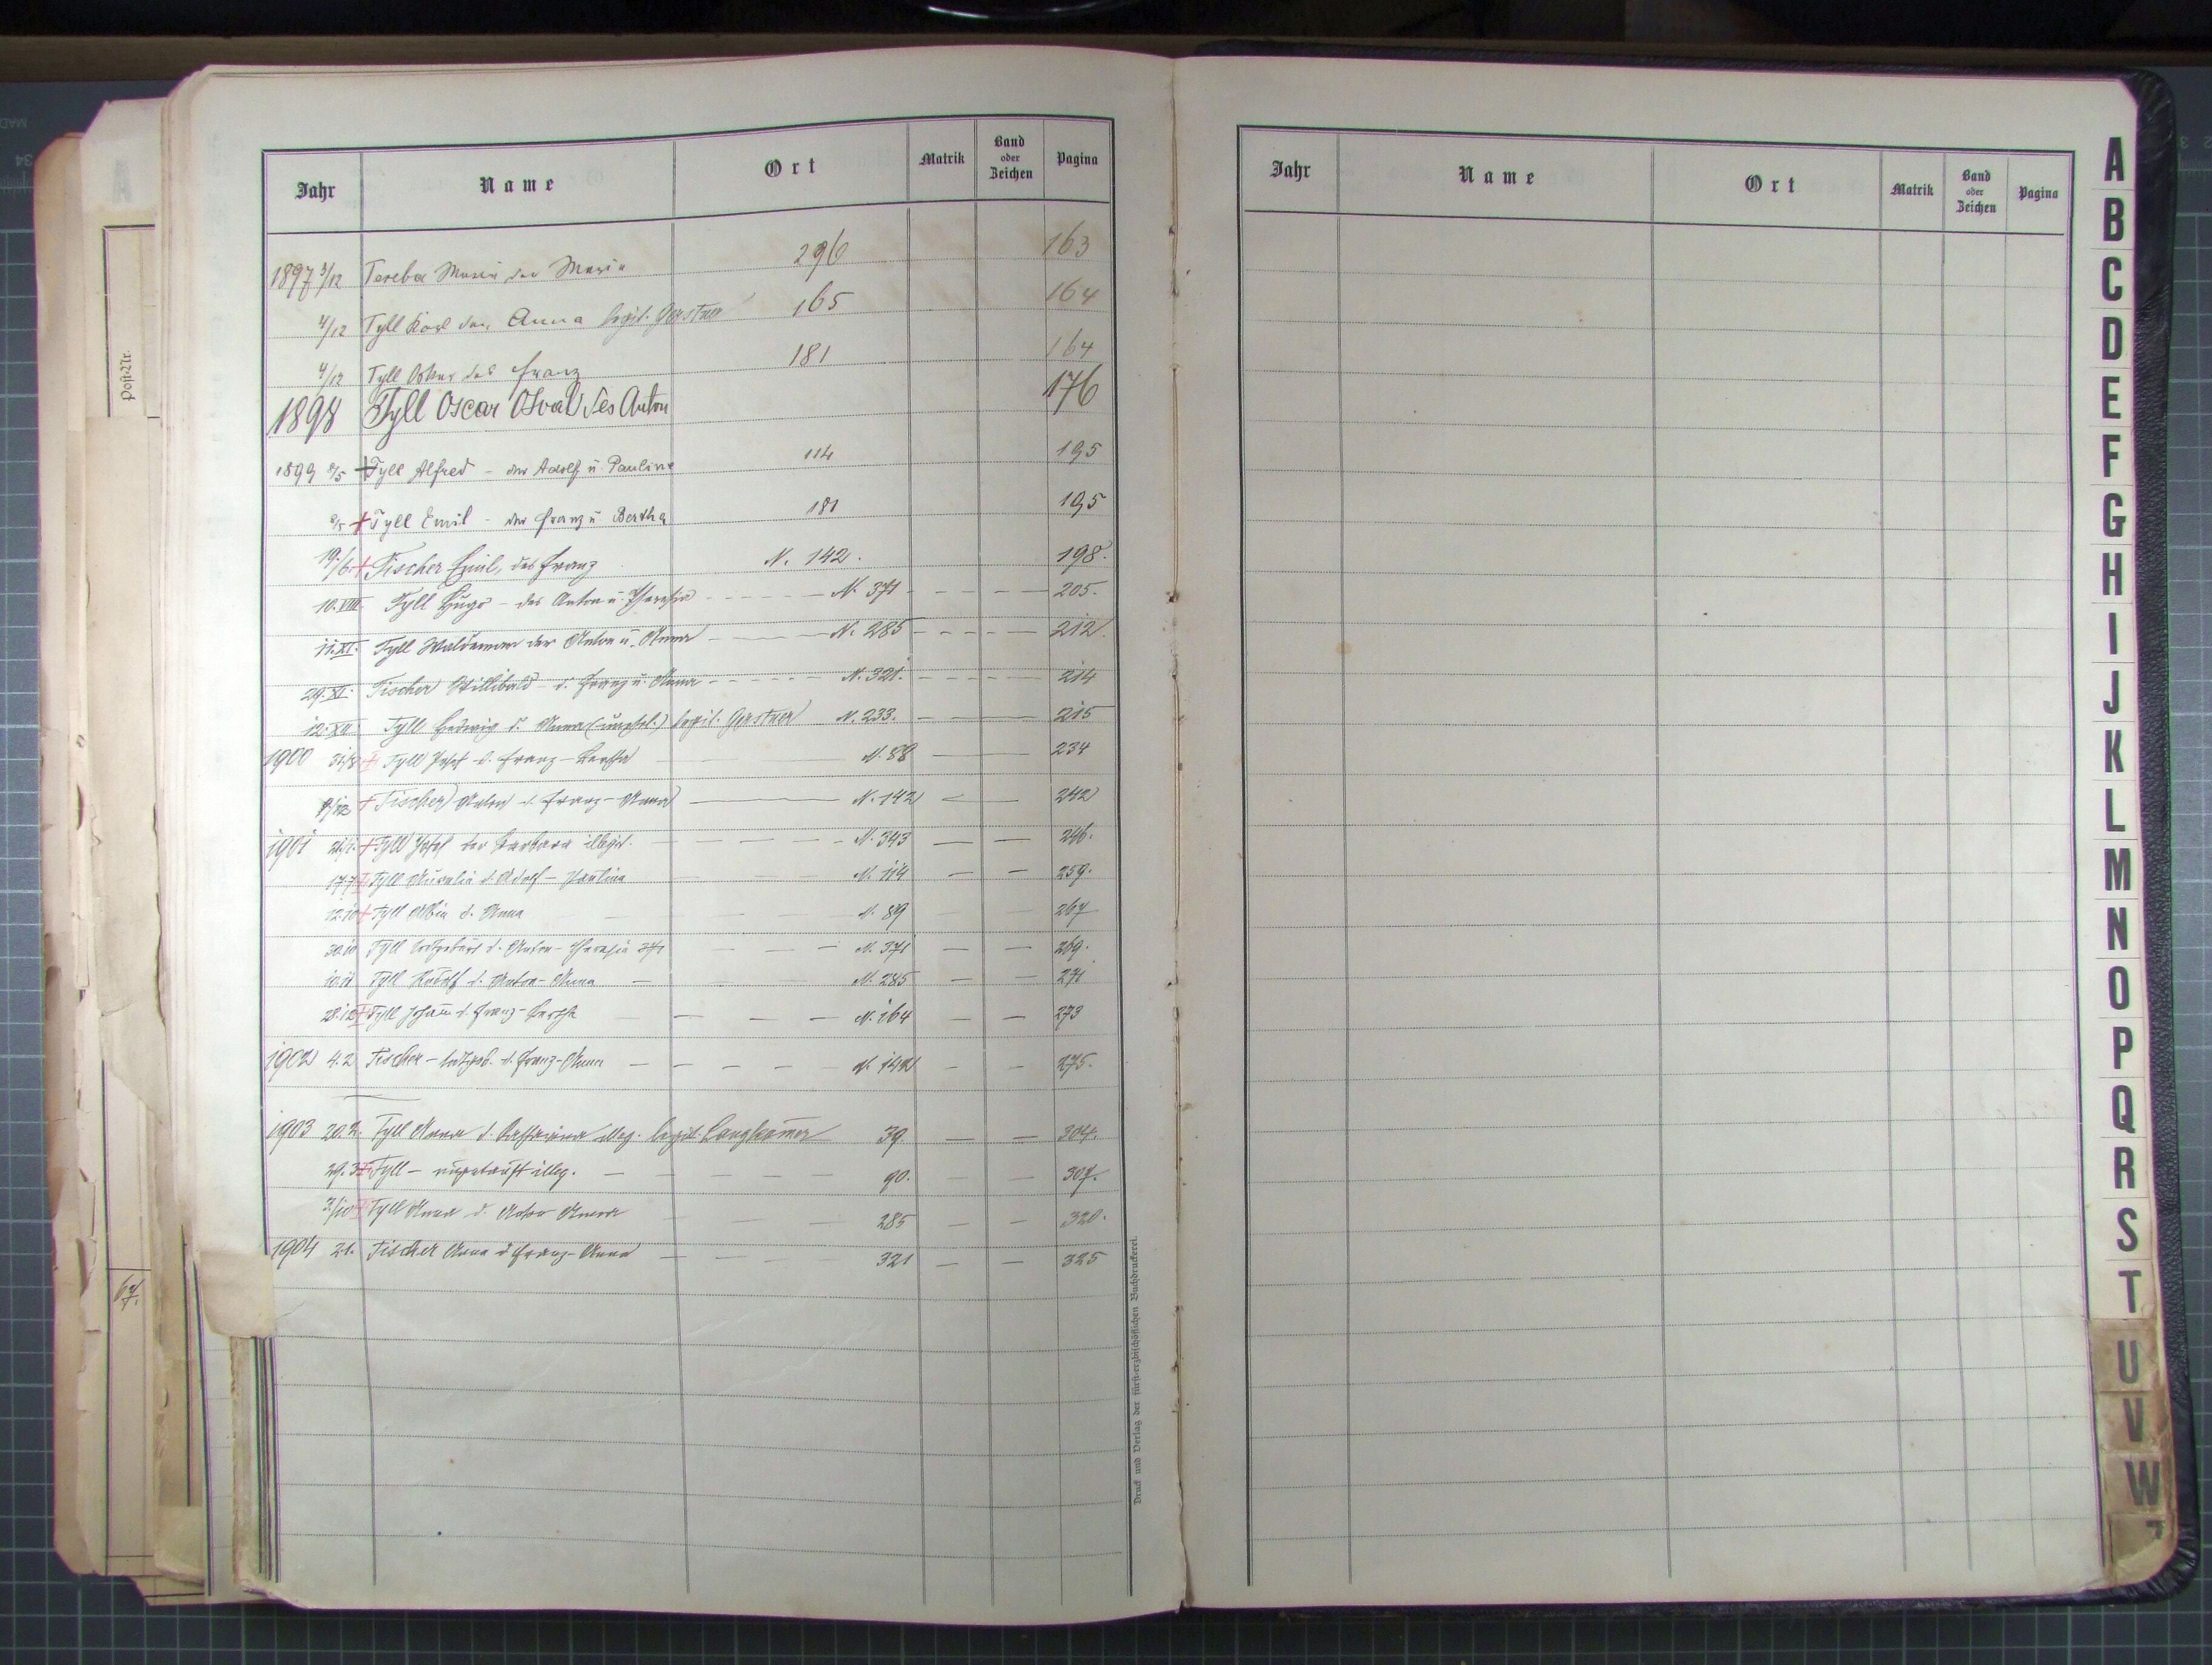 Jahr Name Ort Matrik Band oder Zeichen Pagina
1897 3/12 Tereba Maria der Maria 296 163
4/12 Tyll Karl der Anna legit. Gerstner 165 164
4/12 Tyll Oskar des Franz 181 164
1898 Tyll Oscar Osvald des Anton 176
1899 8/5 + Tyll Alfred - der Adolf u Pauline 114 195
+ Tyll Emil - der Franz u Bertha 181 195
19./6. + Tischer Emil, des Franz N. 142. 198.
10.VIII. Tyll Hugo - des Anton u. Theresia N. 371 205.
11.XI. Tyll Waldemar der Anton u. Anna N. 285 212.
29.XI. Tischer Willibald - d. Franz u. Anna N. 321. 214
12.XII. Tyll Hedwig d. Anna (unehel.) legit. Gerstner N. 233. 215
1900 Tyll Josef d. Franz - Bertha N. 88 234
+ Tischer Anton d. Franz - Anna N. 142 242
1901 + Tyll Josef der Barbara illegit. N. 343 246.
17.7. Tyll Aurelia d. Adolf - Paulina N. 114 259.
12.10 + Tyll Albin d. Anna N. 89 267
30.10 Tyll todtgeburt d. Anton - Theresia N. 371 269.
10.11 Tyll Rudolf d. Anton - Anna N. 285 271
28.12 Tyll Johann d. Franz - Bertha N. 164 273
1902 4.2 Tischer - todtgeb. d. Franz - Anna N. 142 275.
1903 20.2. Tyll Anna d. Katharina illeg. legit. Langhammer 39 304.
29.3 Tyll - ungetauft illeg. 90. 307.
3./10 Tyll Anna d. Anton Anna 285 320.
1904 2.1. Tischer Anna d Franz - Anna 321 325
Druck und Verlag der fürsterzbischöflichen Buchdruckerei.
Post-Nr.
67.
Jahr Name Ort Matrik Band oder Zeichen Pagina
A
B
C
D
E
F
G
H
I
J
K
L
M
N
O
P
Q
R
S
T
U
V
W